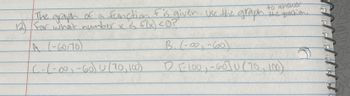 The graph of a function f is given. Use the graph to answer the question.
12) For what number x is f(x) < 0?
A. (-60,70)
B. (-∞, -60)
C. (-∞, -60) ∪ (70, 100)
D. (-100, -60) ∪ (70, 100)